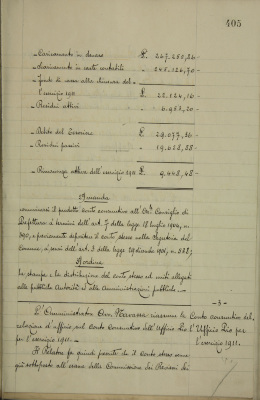 405
- Caricamento in denaro £. 267.250,26 -
- Scaricamento in carte contabili - 245.126,10 -
- Fondo di cassa alla chiusura del-
l'esercizio 1911 £. 22.124,16 -
- Residui attivi - 6.953,20 -
- Debito del Tesoriere £. 29.077,36 -
- Residui passivi - 19.628,88 -
- Rimanenza attiva dell'esercizio 1911 £. 9.448,48 -
Manda
comunicarsi il predetto conto consuntivo all'On. Consiglio di
Prefettura a termini dell'art. 7 della legge 18 luglio 1904, n.
390, e previamente il conto stesso nella segreteria del
Comune, ai sensi dell'art. 3 della legge 29 dicembre 1901, n. 528;
Ordina
la stampa e la distribuzione del conto stesso ed uniti allegati
alle pubbliche Autorità ed alle Amministrazioni pubbliche -
- 5 -
L'Amministratore Avv. riassume la Conto consuntivo del-
relazione d'ufficio sul Conto Consuntivo dell'Ufficio l'Ufficio per
per l'esercizio 1911 - l'esercizio 1911 -
Il Relatore fa quindi presente che il Conto stesso venne
già sottoposto all'esame della Commissione dei Revisori dei